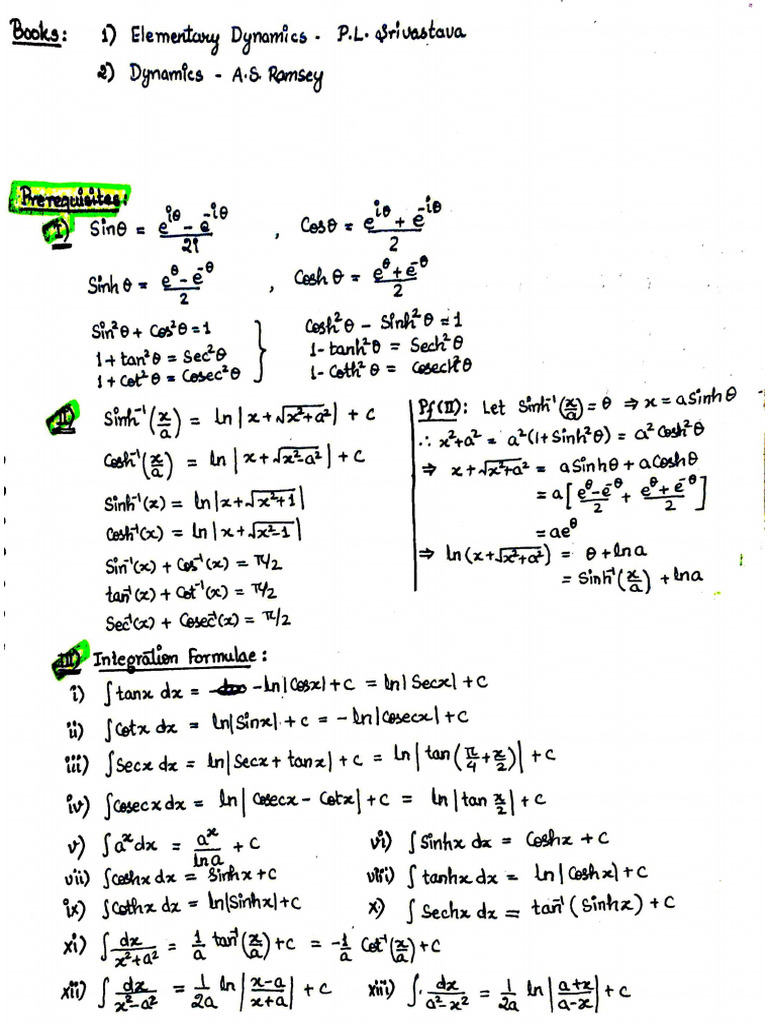 Books: 1) Elementary Dynamics - P.L. Srivastava
2) Dynamics - A.S. Ramsey
Prerequisites:
I) Sinθ = (e^{iθ} - e^{-iθ})/2i , Cosθ = (e^{iθ} + e^{-iθ})/2
Sinhθ = (e^θ - e^{-θ})/2 , Coshθ = (e^θ + e^{-θ})/2
Sin²θ + Cos²θ = 1 } Cosh²θ - Sinh²θ = 1
1 + tan²θ = Sec²θ 1 - tanh²θ = Sech²θ
1 + Cot²θ = Cosec²θ 1 - Coth²θ = Cosech²θ
II) Sinh⁻¹(x/a) = ln|x + √(x²+a²)| + c
Cosh⁻¹(x/a) = ln|x + √(x²-a²)| + c
Sinh⁻¹(x) = ln|x + √(x²+1)|
Cosh⁻¹(x) = ln|x + √(x²-1)|
Sin⁻¹(x) + Cos⁻¹(x) = π/2
tan⁻¹(x) + Cot⁻¹(x) = π/2
Sec⁻¹(x) + Cosec⁻¹(x) = π/2
Pf(II): Let Sinh⁻¹(x/a) = θ ⇒ x = a Sinhθ
∴ x²+a² = a²(1+Sinh²θ) = a² Cosh²θ
⇒ x + √(x²+a²) = a Sinhθ + a Coshθ
= a[(e^θ - e^{-θ})/2 + (e^θ + e^{-θ})/2]
= ae^θ
⇒ ln(x + √(x²+a²)) = θ + ln a
= Sinh⁻¹(x/a) + ln a
III) Integration Formulae:
i) ∫tanx dx = -ln|Cosx| + c = ln|Secx| + c
ii) ∫Cotx dx = ln|Sinx| + c = -ln|Cosecx| + c
iii) ∫Secx dx = ln|Secx + tanx| + c = ln|tan(π/4 + x/2)| + c
iv) ∫Cosecx dx = ln|Cosecx - Cotx| + c = ln|tan x/2| + c
v) ∫a^x dx = a^x/ln a + c vi) ∫Sinhx dx = Coshx + c
vii) ∫Coshx dx = Sinhx + c viii) ∫tanhx dx = ln|Coshx| + c
ix) ∫Cothx dx = ln|Sinhx| + c x) ∫Sechx dx = tan⁻¹(Sinhx) + c
xi) ∫dx/(x²+a²) = 1/a tan⁻¹(x/a) + c = -1/a Cot⁻¹(x/a) + c
xii) ∫dx/(x²-a²) = 1/2a ln|(x-a)/(x+a)| + c xiii) ∫dx/(a²-x²) = 1/2a ln|(a+x)/(a-x)| + c